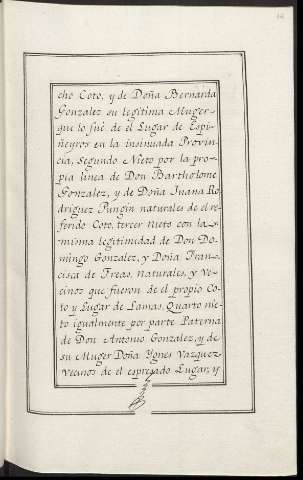 cho Coto, y de Doña Bernarda
Gonzalez su legitima Muger
que lo fué de el Lugar de Espi-
ñeyros en la insinuada Provin-
cia, Segundo Nieto por la pro-
pia linea de Don Bartholome
Gonzalez, y de Doña Juana Ro
driguez Pungin naturales de el re-
ferido Coto, tercer Nieto con la
misma legitimidad de Don Do-
mingo Gonzalez, y Doña Fran-
cisca de Freas, Naturales, y Ve-
cinos que fueron de el propio Co-
to y Lugar de Lamas, Quarto nie-
to igualmente por parte Paterna
de Don Antonio Gonzalez, y de
su Muger Doña Ygnes Vazquez
Vecinos de el expresado Lugar, y